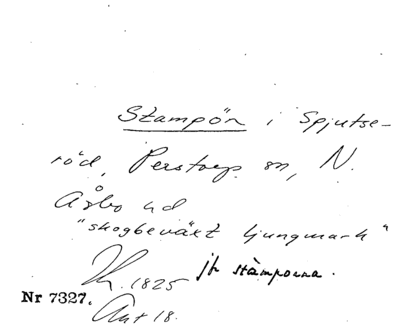 Stampön i Spjutse-
röd, Perstorp sn, N.
Åsbo hd
"skogbeväxt ljungmark"
1825 jfr stamporna.
Nr 7327.
Akt 18.